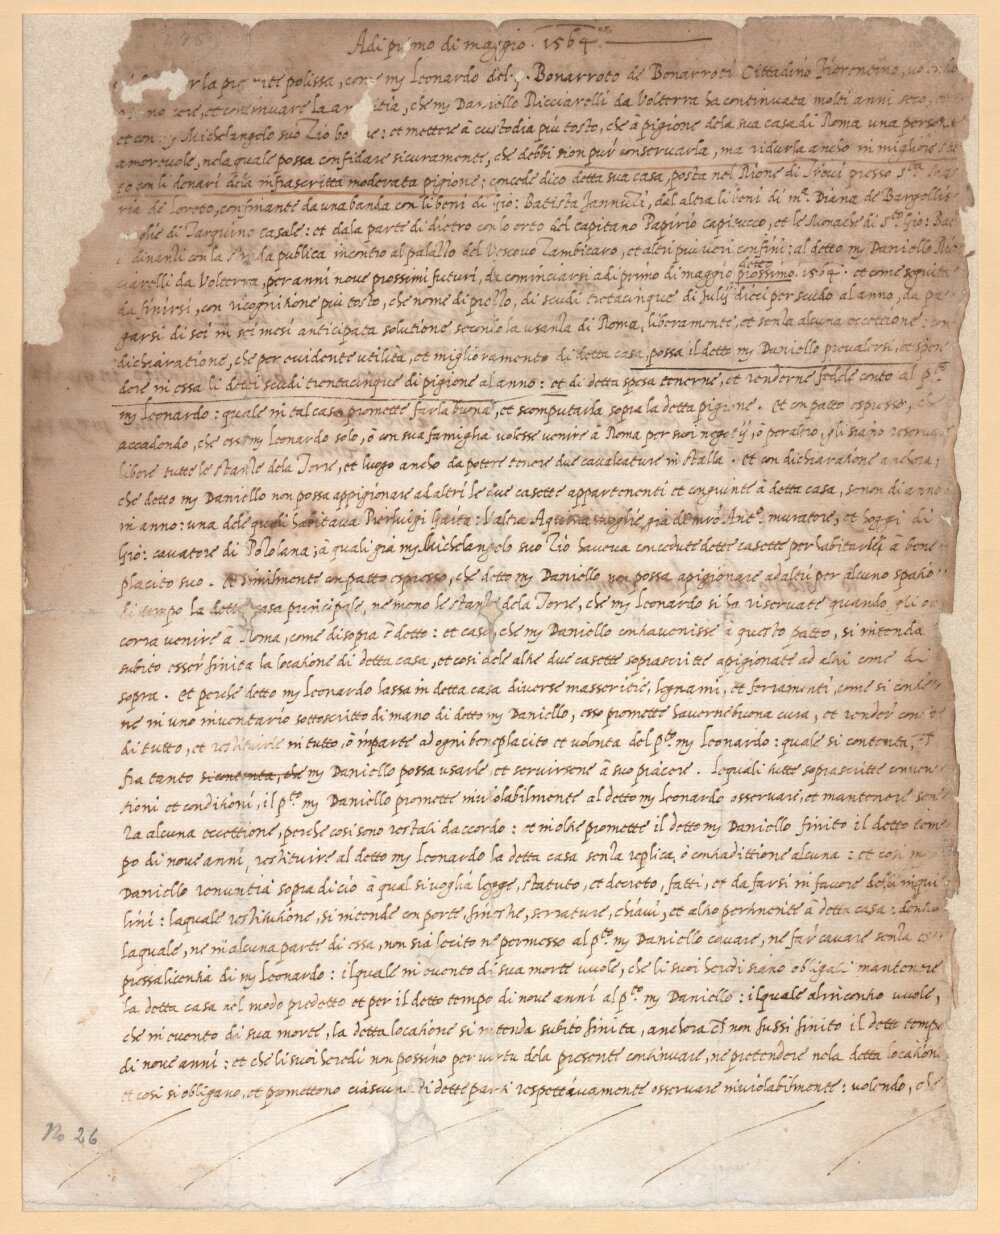 Adi primo di maggio. 1564.
per la presente polissa, come mj Leonardo del Bonarroto de Bonarroti Cittadino Fiorentino,
et continuare la che mj Daniello Ricciarelli da Volterra ha continuata molti anni seco, et
et con Michelangelo suo Zio: et mettere à custodia più tosto, che à pigione dela sua casa di Roma una persona
amorevole, nela quale possa confidare sicuramente, che debbi non pur conservarla, ma ridurla ancho in migliore
con li denari dela infrascritta moderata pigione: concede dico detta sua casa, posta nel Rione di Trevi presso S.ta Ma
ria de Loreto, confinante da una banda con li beni di Gio: Batista Jannuzi, dal altra li beni di m.a Diana de
moglie di Tarquino casale: et dala parte di dietro con lo orto del capitano Papirio capizucco, et le Monache di S.to Gio: Bat
dinanti con la strada publica incontro al palazzo del Vescovo Zambicaro, et altri più veri confini: al detto mj Daniello Ric
ciarelli da Volterra, per anni nove prossimi futuri, da cominciarsi adi primo di maggio detto prossimo 1564. et come seguita
da finirsi, con ricognitione più tosto, che nome di prezzo, di scudi trentacinque di Julij dieci per scudo al anno, da pa
garsi di sei in sei mesi anticipata solutione secondo la usanza di Roma, liberamente, et senza alcuna eccettione: con
dichiaratione, che per evidente utilità, et miglioramento di detta casa, possa il detto mj Daniello prevalersi, et spen
dere in essa li detti scudi trentacinque di pigione al anno: et di detta spesa tenerne, et renderne fedele conto al p.to
mj Leonardo: quale in tal caso promette farla buona, et scomputarla sopra la detta pigione. Et con patto espresso, che
accadendo, che esso mj Leonardo solo, ò con sua famiglia volesse venire à Roma per suoi negotij, ò per altro, gli siano reservate
libere tutte le stanze dela Torre, et luogo ancho da potere tenere due cavalcature in stalla. et con dichiaratione anchora,
che detto mj Daniello non possa appigionare ad altri le due casette appartenenti et congiunte à detta casa, se non di anno
in anno: una dele quali habitava Pierluigi Gaeta: l'altra moglie già de mro Ant.o muratore, et hoggi di
Gio: cavatore di Pozolana; à quali già mj Michelangelo suo Zio haveva concedute dette casette per habitarle à bene
placito suo. Et similmente con patto espresso, che detto mj Daniello non possa apigionare ad altri per alcuno spatio
di tempo la detta casa principale, ne meno le stanze dela Torre, che mj Leonardo si ha riservate quando gli oc
corra venire à Roma, come di sopra è detto: et caso, che mj Daniello contravenisse à questo patto, si intenda
subito esser finita la locatione di detta casa, et cosi dele altre due casette soprascritte apigionate ad altri come di
sopra. Et perche detto mj Leonardo lassa in detta casa diverse masseritie, legnami, et ferramenti, come si contie
ne in uno inventario sottoscritto di mano di detto mj Daniello, esso promette haverne buona cura, et render conto
di tutto, et restituirle in tutto, ò in parte ad ogni beneplacito et volontà del p.to mj Leonardo: quale si contenta,
fra tanto si contenta, che mj Daniello possa usarle, et servirsene à suo piacere. Le quali tutte soprascritte conven
tioni et conditioni, il p.to mj Daniello promette inviolabilmente al detto mj Leonardo osservare, et mantenere sen
za alcuna eccettione, perche cosi sono restati daccordo: et inoltre promette il detto mj Daniello finito il detto tem
po di nove anni, restituire al detto mj Leonardo la detta casa senza replica, ò contradittione alcuna: et così
Daniello renuntia sopra di ciò à qual si voglia legge, statuto, et decreto, fatti, et da farsi in favore deli inqui
lini: laquale restitutione, si intende con porte, finestre, serrature, chiavi, et altro pertinente à detta casa:
laquale, ne in alcuna parte di essa, non sia lecito ne permesso al p.to mj Daniello cavare, ne far cavare senza es
pressa licentia di mj Leonardo: il quale in evento di sua morte vuole, che li suoi heredi siano obligati mantenere
la detta casa nel modo predetto et per il detto tempo di nove anni al p.to mj Daniello: il quale al incontro vuole,
che in evento di sua morte, la detta locatione si intenda subito finita, anchora che non fussi finito il detto tempo
di nove anni: et che li suoi heredi non possino per virtù dela presente continuare, ne pretendere nela detta location
et così si obligano, et promettono ciascuna di dette parti respettivamente osservare inviolabilmente: volendo, che
No 26